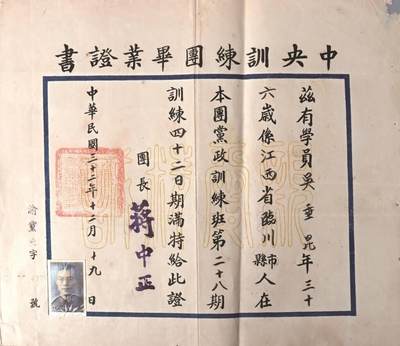 中央訓練團畢業證書
茲有學員吳重昆年三十
六歲係江西省臨川市縣人在
本團黨政訓練班第二十八期
訓練四十二日期滿特給此證
團長 蔣中正
中華民國三十二年十二月十九日
字 號